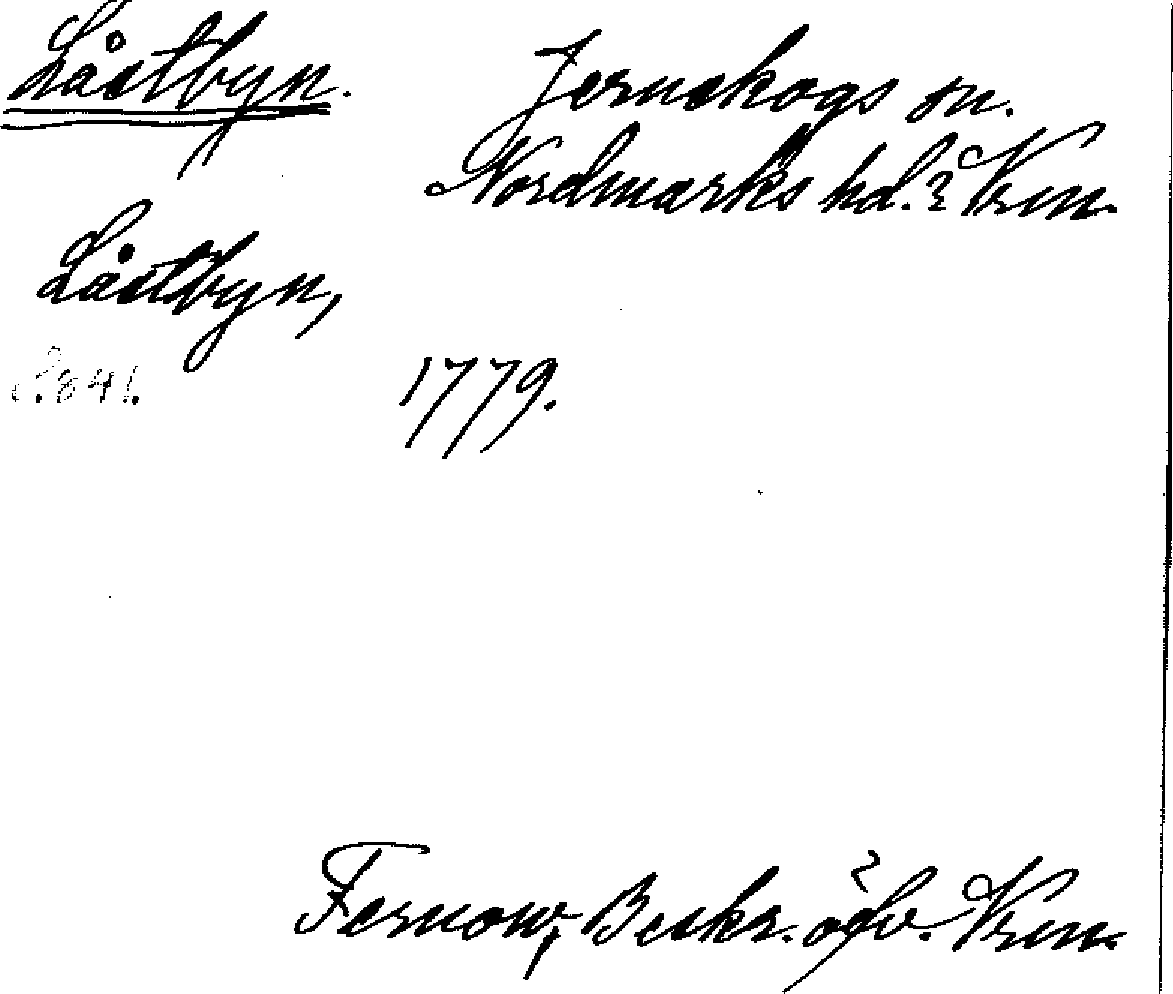 Låstbyn. Jernskogs sn.
Nordmarks hd. Vrm.
Låstbyn,
S. 841. 1779.
Fernow, Beskr. öfv. Vrm.